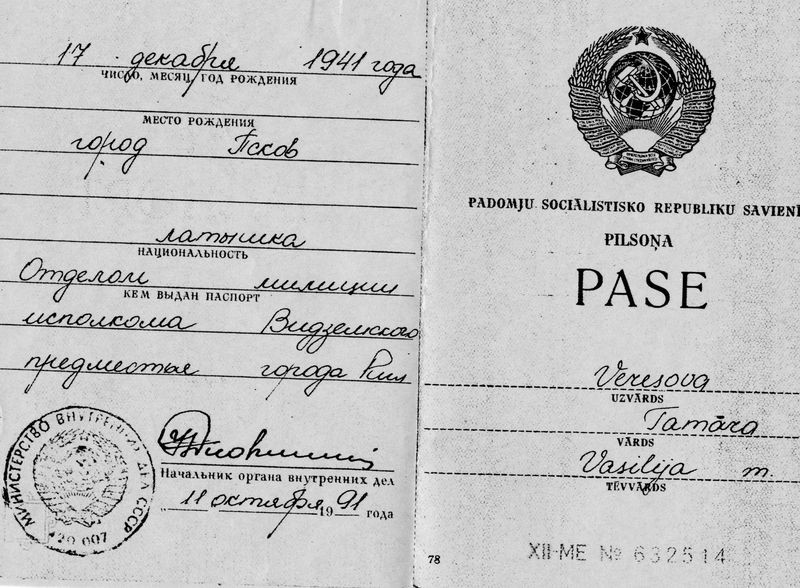 17 декабря 1941 года
ЧИСЛО, МЕСЯЦ, ГОД РОЖДЕНИЯ
МЕСТО РОЖДЕНИЯ
город Псков
латышка
НАЦИОНАЛЬНОСТЬ
Отделом милиции
КЕМ ВЫДАН ПАСПОРТ
исполкома Видземского
предместья города Риги
МИНИСТЕРСТВО ВНУТРЕННИХ ДЕЛ СССР
Начальник органа внутренних дел
11 октября 1991 года
PADOMJU SOCIĀLISTISKO REPUBLIKU SAVIENĪ
PILSOŅA
PASE
Veresova
UZVĀRDS
Tamāra
VĀRDS
Vasilija m.
TĒVVĀRDS
78
XII-ME № 632514